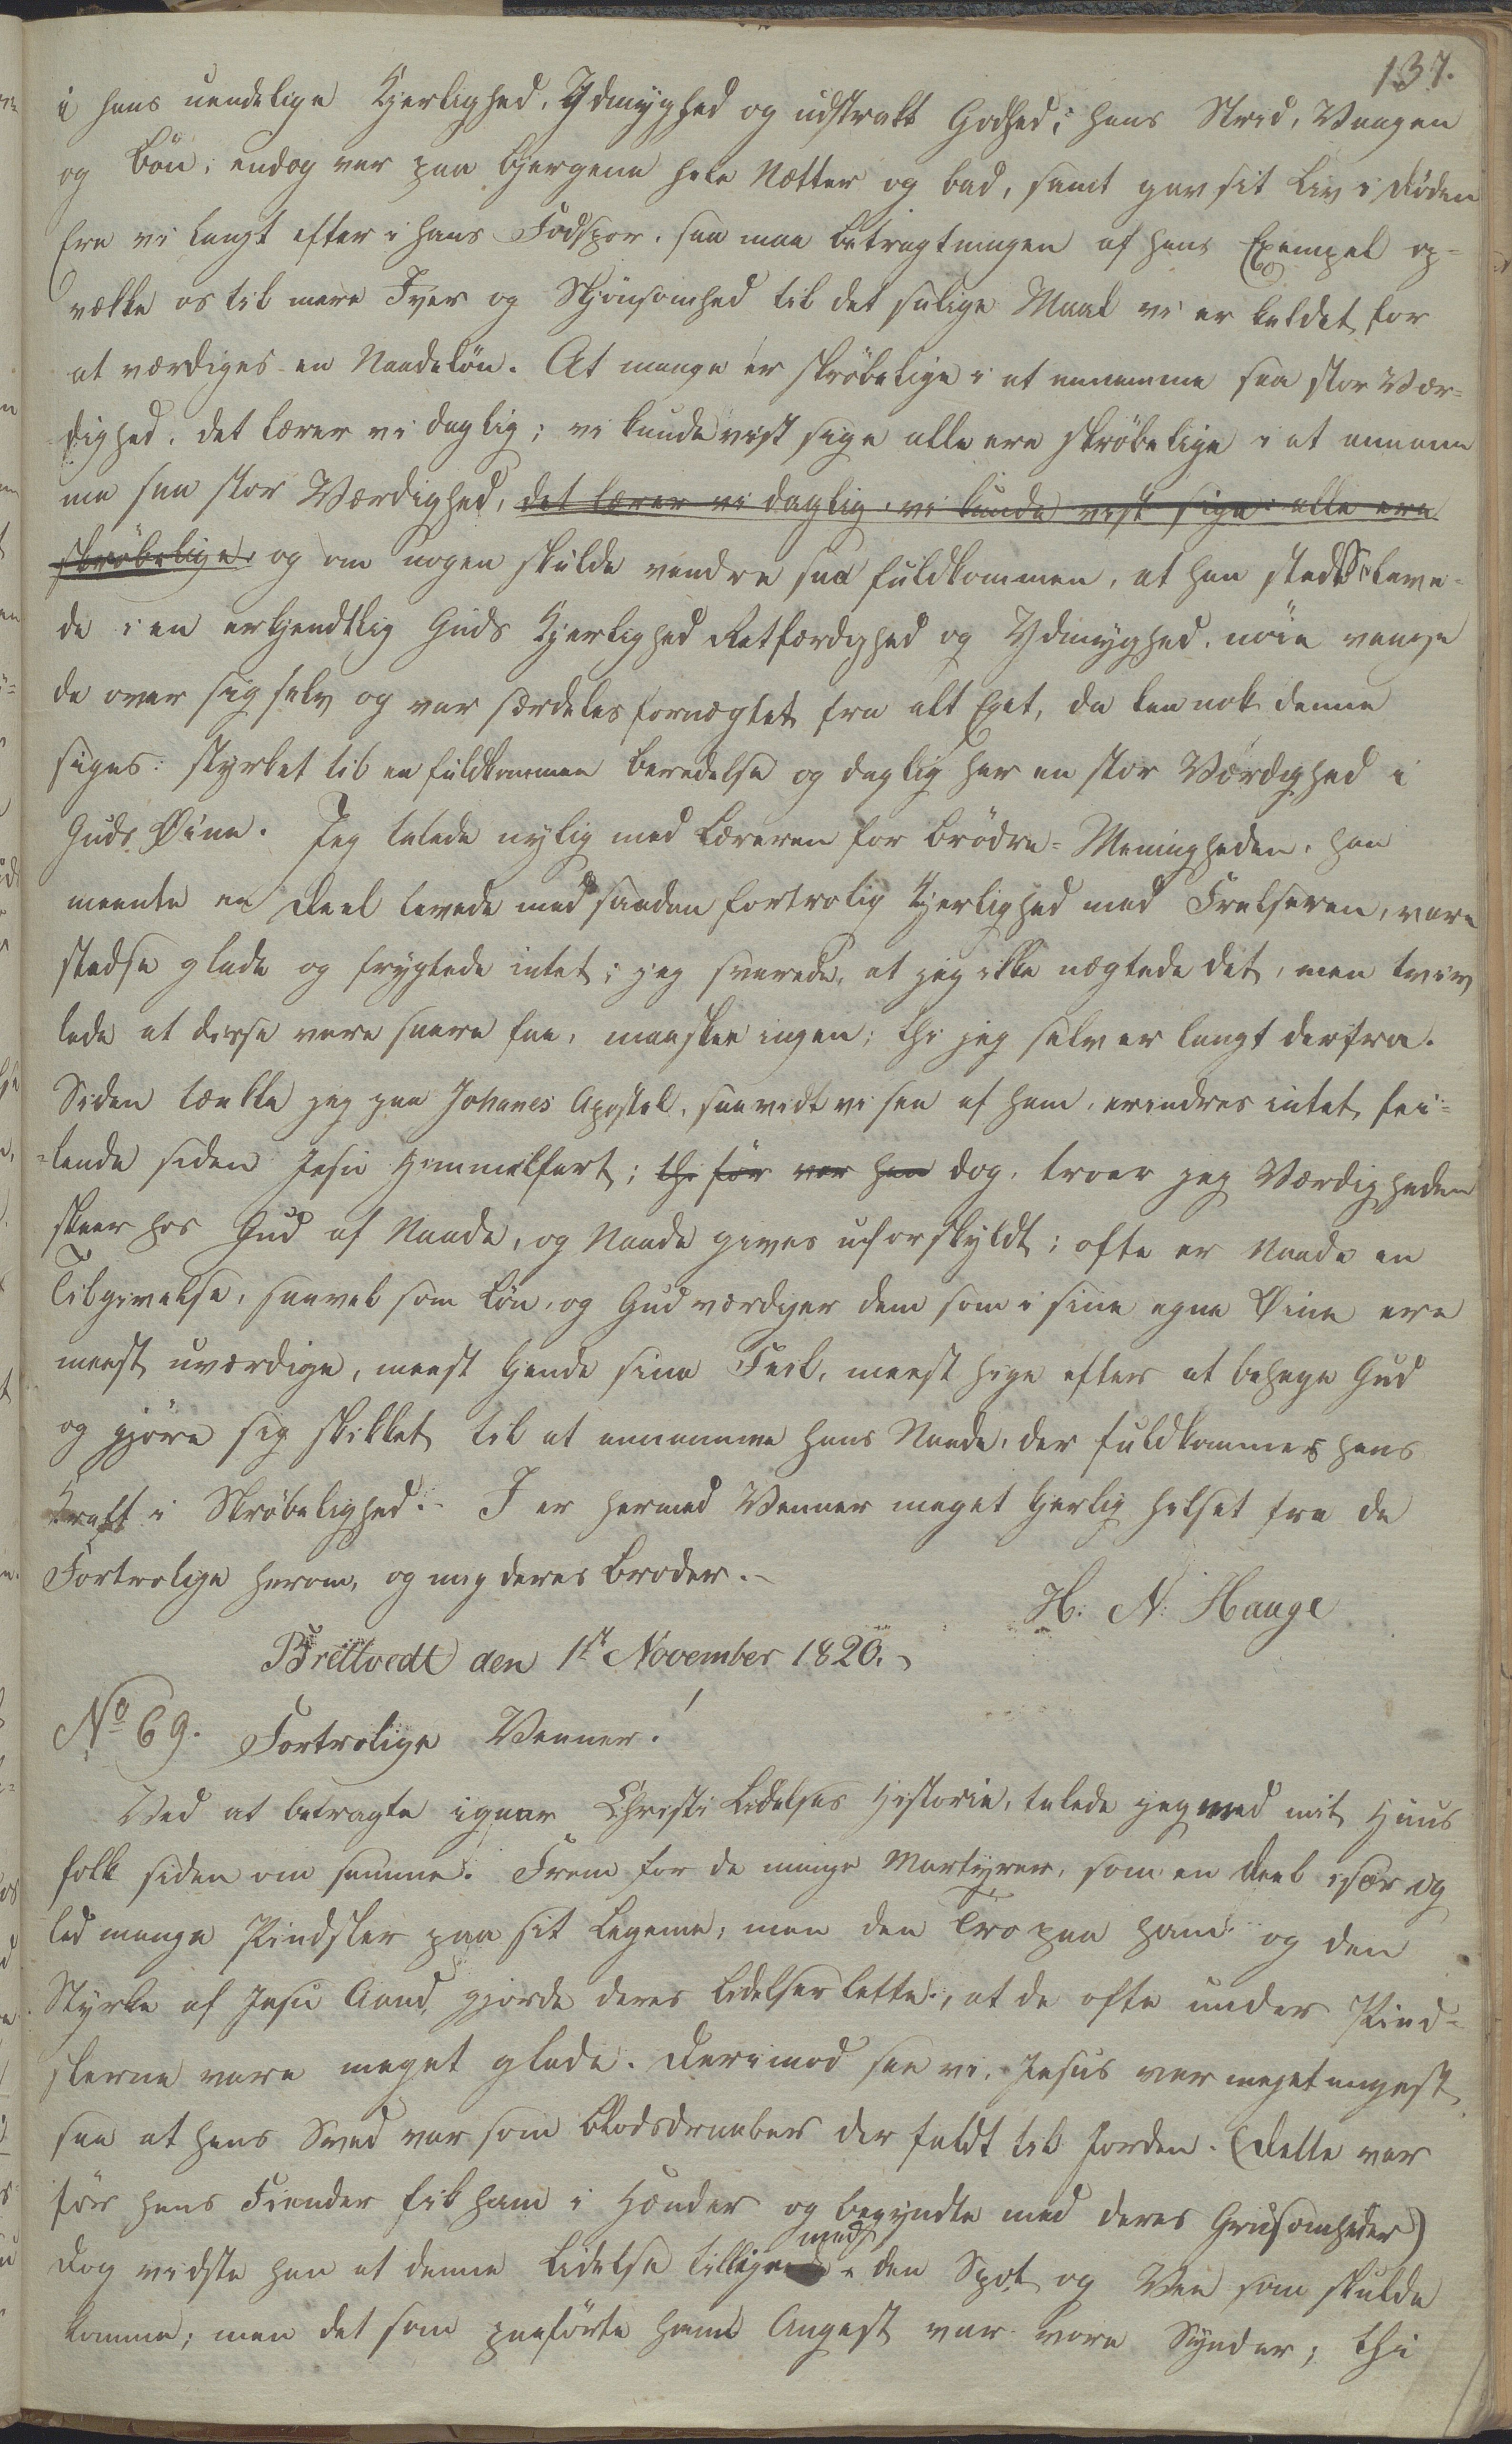 137.
i hans uendelige Kjerlighed, Ydmyghed og udstrakt Godhed; hans Strid, Vaagen
og Bön; endog var paa Bjergene hele Nætter og bad, samt gav sit Liv i Döden
Ere vi langt efter i hans Fodspor, saa maa Betragtningen af hans Exempel op-
vække os til mere Iver og Skjönsomhed til det salige Maal vi er kaldet for
at værdiges en Naadelön. At mange er skröbelige i at annamme saa stor Vær-
dighed, det lærer vi daglig; vi kunde vist sige alle ere skröbelige i at annam
me saa stor Værdighed, det lærer vi daglig, vi kunde vist sige: alle ere
skröbelige: og om nogen skulde vandre saa fuldkommen, at han stedse leve-
de i en erkjendtlig Guds Kjerlighed Retfærdighed og Ydmyghed, nöie vaage
de over sig selv og var særdeles fornægtet fra alt Eget, da kan nok denne
siges: styrket til en fuldkommen Beredelse og daglig har en stor Værdighed i
Guds Øine. Jeg talede nylig med Læreren for Brödre-Menigheden, han
meente en Deel levede med saadan fortrolig Kjerlighed med Frelseren, vare
stedse glade og frygtede intet; jeg svarede, at jeg ikke nægtede det, men tviv
lede at disse vare saare faa, maaskee ingen; thi jeg selv er langt derfra.
Siden tænkte jeg paa Johanes Apostel, saavidt vi see af ham, erindres intet fei-
-lende siden Jesu Himmelfart; thi för var han dog, troer jeg Værdigheden
skeer hos Gud af Naade, og Naade gives uforskyldt; ofte er Naade en
Tilgivelse, saavel som Lön, og Gud værdiger dem som i sine egne Øine ere
meest uværdige, meest kjende sine Feil, meest hige efter at behage Gud
og gjöre sig skikket til at annamme hans Naade, der fuldkommes hans
Kraft i Skröbelighed. I er hermed Venner meget kjerlig hilset fra de
Fortrolige herom, og mig deres Broder.
H: N: Hauge
Brettvedt den 1st November 1820.
No 69. Fortrolige Venner!
Ved at betragte igaar Christi Lidelses Historie, talede jeg med mit Huus
folk siden om samme. Frem for de mange Martyrer, som en Deel især og
led mange Pindsler paa sit Legeme; men den Tro paa ham og den
Styrke af Jesu Aand, gjorde deres Lidelser lette, at de ofte under Pind-
slerne vare meget glade. Derimod see vi, Jesus var meget angest
saa at hans Sved var som Blodsdraaber der faldt til Jorden. (Dette var
för hans Fiender fik ham i Hænder og begyndte med deres Grusomheder)
Dog vidste han at denne Lidelse tillige med den Spot og Vee som skulde
komme; men det som paaförte ham Angest var vore Synder; thi